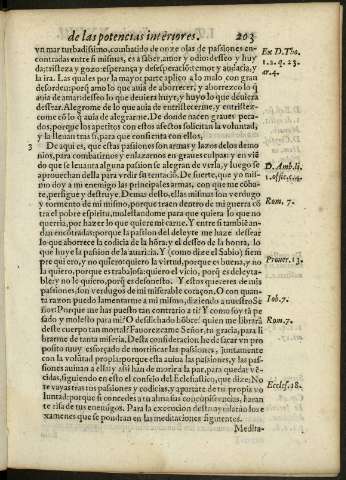 de las potencias interiores. 203
vn mar turbadissimo, combatido de onze olas de passiones en-
contradas entre si mismas, es a saber, amor y odio: desseo y huy
da; tristeza y gozo: esperança y desesperació: temor y audacia, y
la ira. Las quales por la mayor parte aplico a lo malo con gran
desorden: porq̃ amo lo que auia de aborrecer, y aborrezco lo q̃
auia de amar: desseo lo que deuiera huyr, y huyo lo que deuiera
dessear. Alegrome de lo que auia de entristecerme, y entristez-
come cõ lo q̃ auia de alegrarme. De donde nacen graues peca-
dos, porque los apetitos con estos afectos solicitan la voluntad,
y la lleuan tras si, para que consienta con ellos.
3 De aqui es, que estas passiones son armas y lazos delos demo
nios, para combatirme y enlazarnos en graues culpas: y en viẽ
do que se leuanta alguna passion se alegran de verla, y luego se
aprouechan della para vrdir su tentació. De suerte, que yo mis-
mo doy a mi enemigo las principales armas, con que me comba-
te, persigue y destruye. Demas desto, ellas mismas son verdugo
y tormento de mi mismo, porque traen dentro de mi guerra cõ
tra el pobre espiritu, molestandome para que quiera lo que no
querria, por hazer lo que quiere mi carne. Y entre si tambiẽ an-
dan encontradas: porque la passion del deleyte me haze dessear
lo que aborrece la codicia de la hõra: y el desseo de la honra, lo
que huye la passion de la auaricia. Y (como dize el Sabio) siem
pre quiero, y no quiero: quiero la virtud, porque es buena, y no
la quiero, porque es trabajosa: quiero el vicio, porq̃ es deleyta-
ble y no le quiero, porq̃ es deshonesto. Y estos quereres de mis
passiones, son verdugos de mi miserable coraçon. O con quan-
ta razon puedo lamentarme a mi mismo, diziendo a nuestro Se
ñor: Porque me has puesto tan contrario a ti? Y como soy tã pe
sado y molesto para mi? O desdichado hõbre! quien me librarà
deste cuerpo tan mortal? Fauorezcame Señor, tu gracia, para li
brarme de tanta miseria. Desta consideracion, he de sacar vn pro
posito muy esforçado de mortificar las passiones, juntamente
con la volũtad propia: porque esta auiua las passiones, y las pas-
siones auiuan a ella: y assi han de morir a la par, para quedar vẽ-
cidas, siguiendo en esto el consejo del Eclesiastico, que dize: No
te vayas tras tus passiones y codicias, y apartate de tu propia vo
luntad: porque si concedes a tu alma sus concupiscencias, haran
te risa de tus enemigos. Para la execucion desto ayudaràn los e-
xamenes que se pondran en las meditaciones siguientes.
Medita-
Ex D. Tho.
1. 2. q. 23.
ar. 4.
D. Amb. li.
1. offic. c. 4.
Rom. 7.
Prouer. 13.
Iob. 7.
Rom. 7.
Eccles. 18.